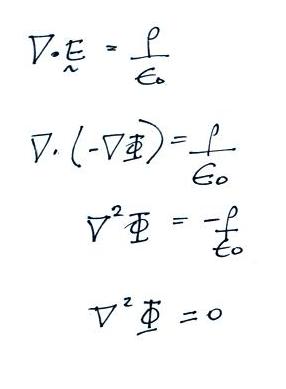 ∇·Ḛ = ρ/ϵ₀
∇·(-∇Φ) = ρ/ϵ₀
∇²Φ = -ρ/ϵ₀
∇²Φ = 0